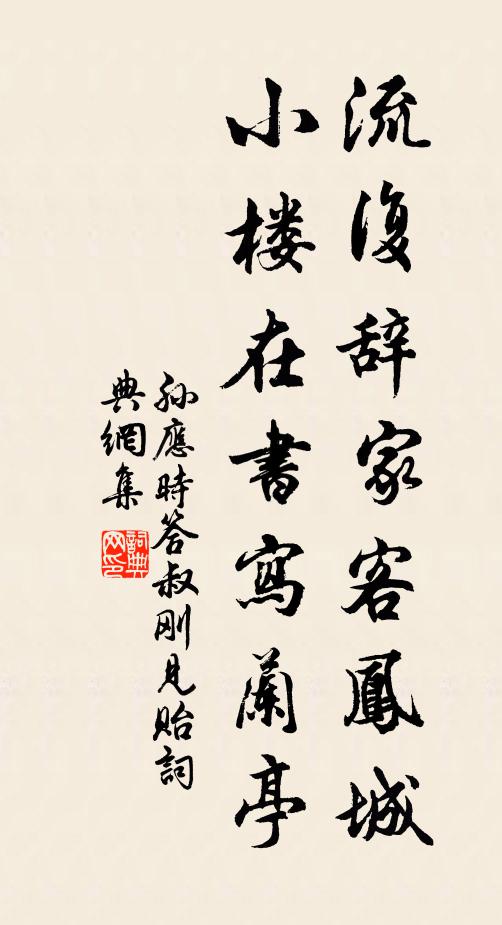 流復辞家客鳳城
小楼在書寫蘭亭
孙應時答叔刚見貽詞
典網集
詞典
网印